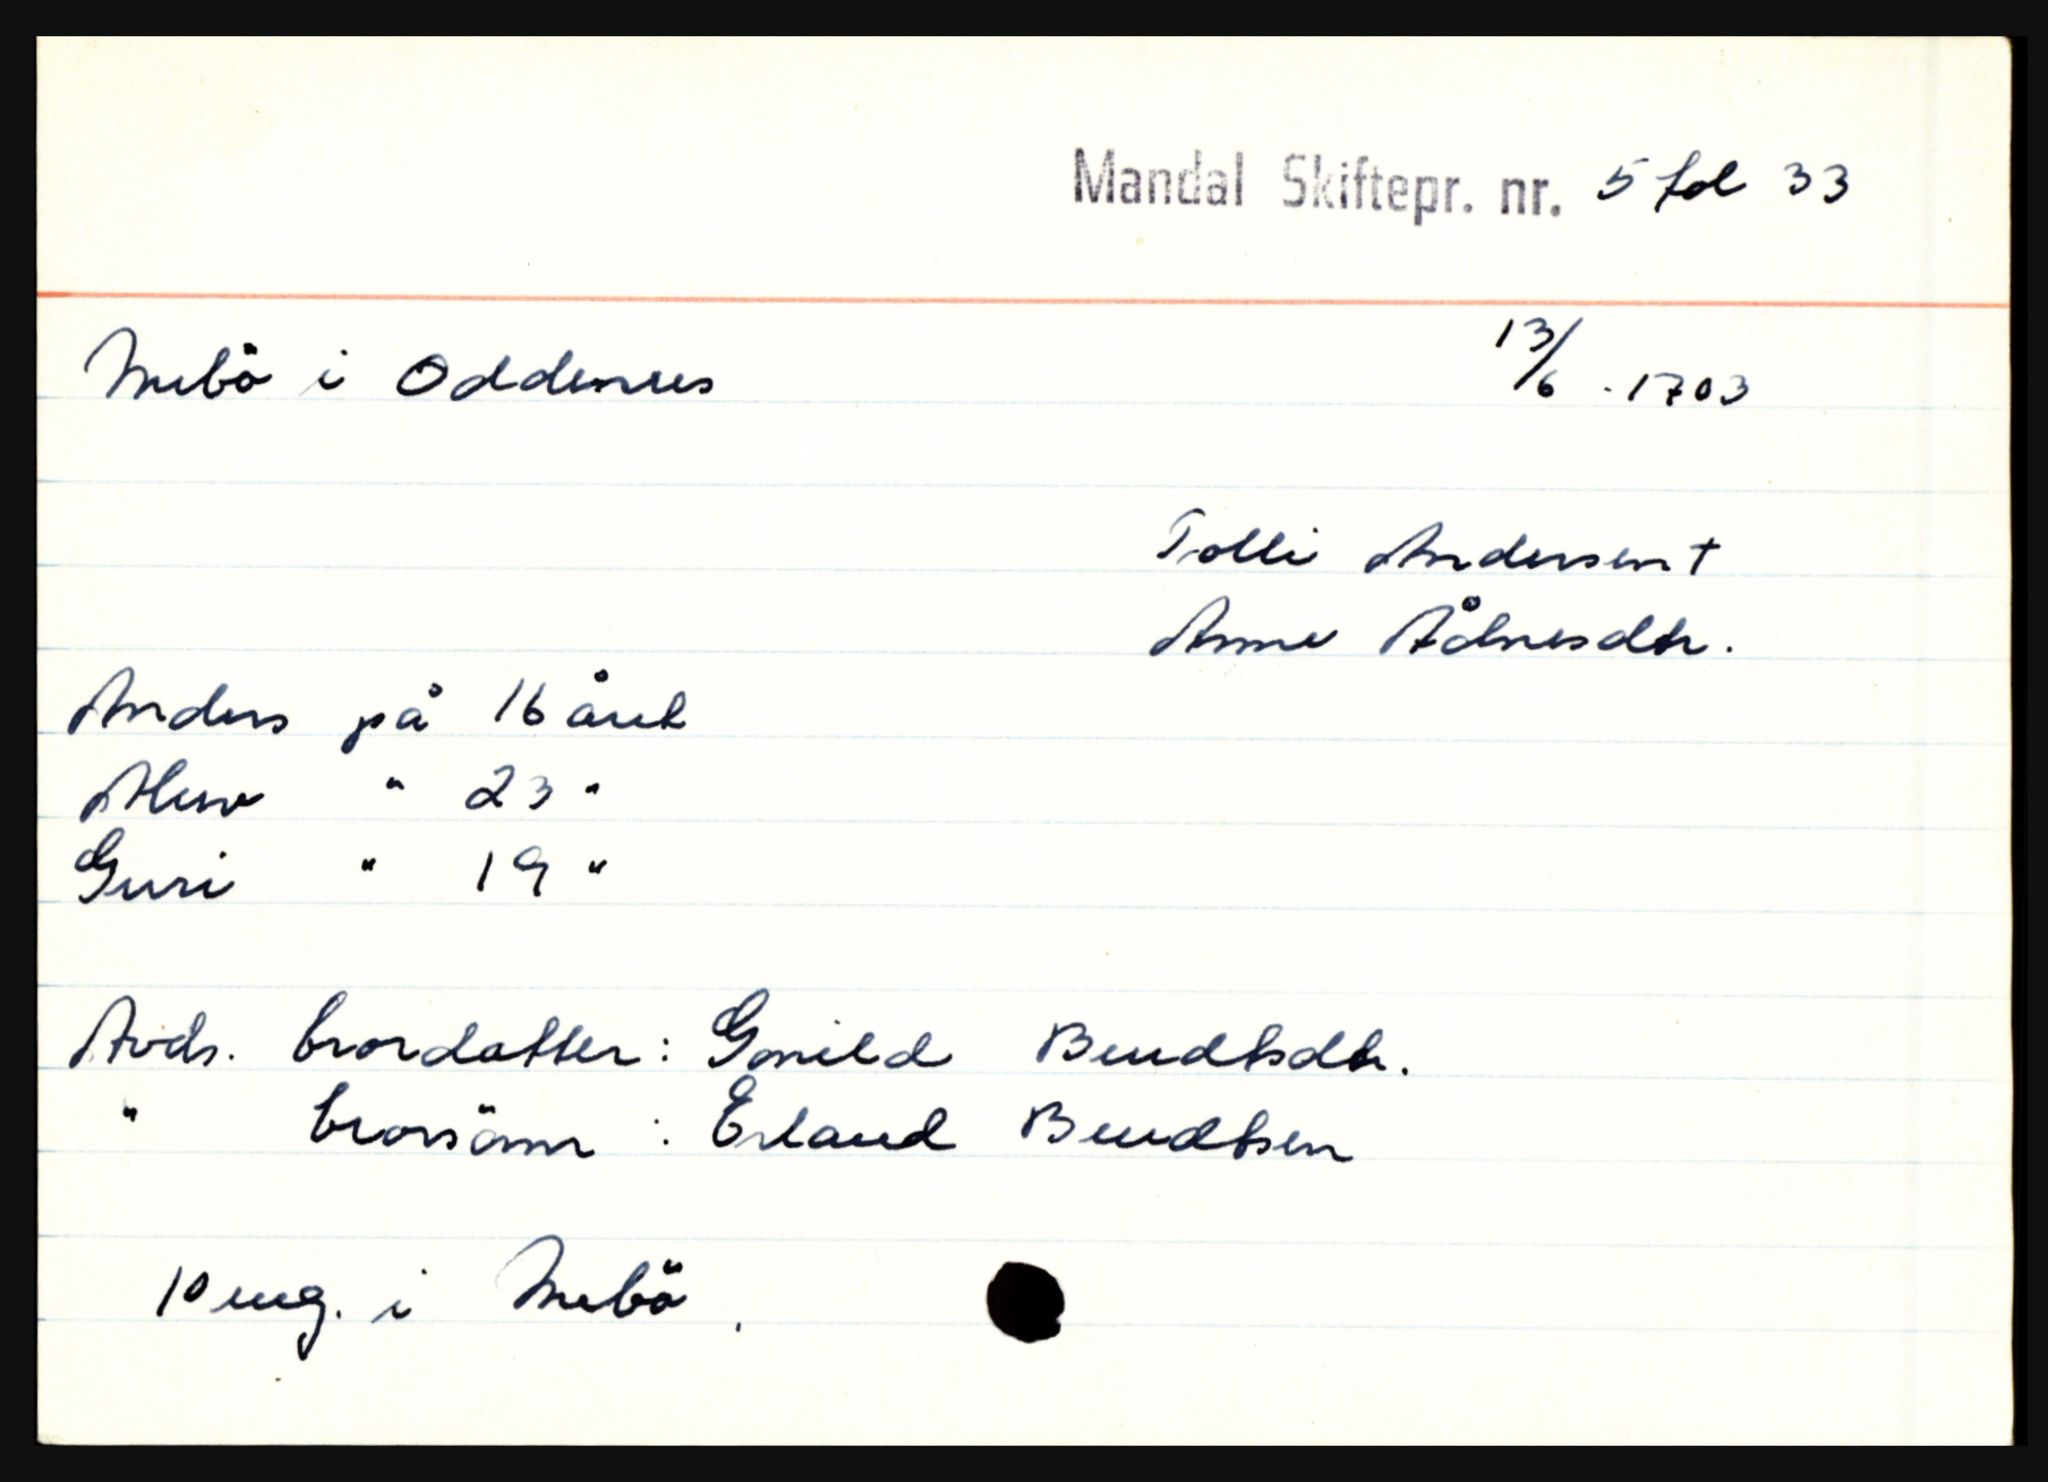 Mandal Skiftepr. nr. 5 fol 33
Mebö i Oddernes 13/6 - 1703
Tolli Andersen †
Anne Ådnesdtr.
Anders på 16 året
Alene " 23 "
Guri " 19 "
Avds. brordatter: Gonild Bendtsdtr.
" brorsönn : Erland Bendtsen
10 eng. i Mebö.